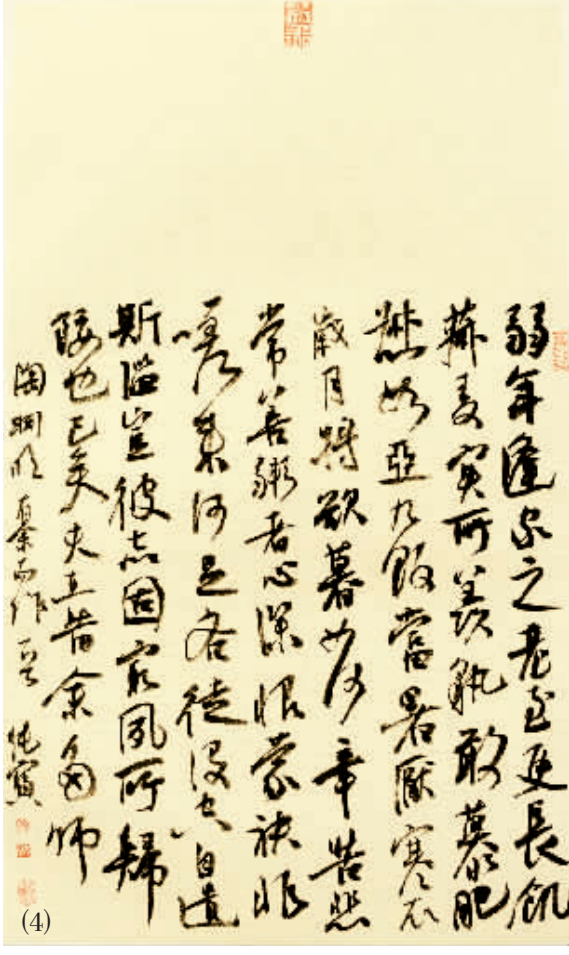 弱年逢家乏老至更長飢
菽麥實所羨孰敢慕甘肥
惄如亞九飯當暑厭寒衣
歲月將欲暮如何辛苦悲
常善粥者心深恨蒙袂非
嗟來何足吝徒沒空自遺
斯濫豈彼志固窮夙所歸
餒也已矣夫在昔余多師
陶淵明 而作
(4)